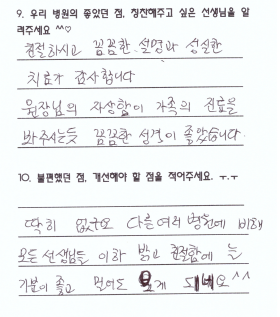 9. 우리 병원의 좋았던 점, 칭찬해주고 싶은 선생님을 알
려주세요 ^^♡
친절하시고 꼼꼼한 설명과 성실한
치료가 감사합니다
원장님의 자상함이 가족의 진료를
봐주시는듯 꼼꼼한 성격이 좋았습니다.
10. 불편했던 점, 개선해야 할 점을 적어주세요. ㅜ.ㅜ
딱히 없구요 다른여러 병원에 비해
모든선생님들 이하 밝고 친절함에 늘
기분이 좋고 믿어도 되네요^^